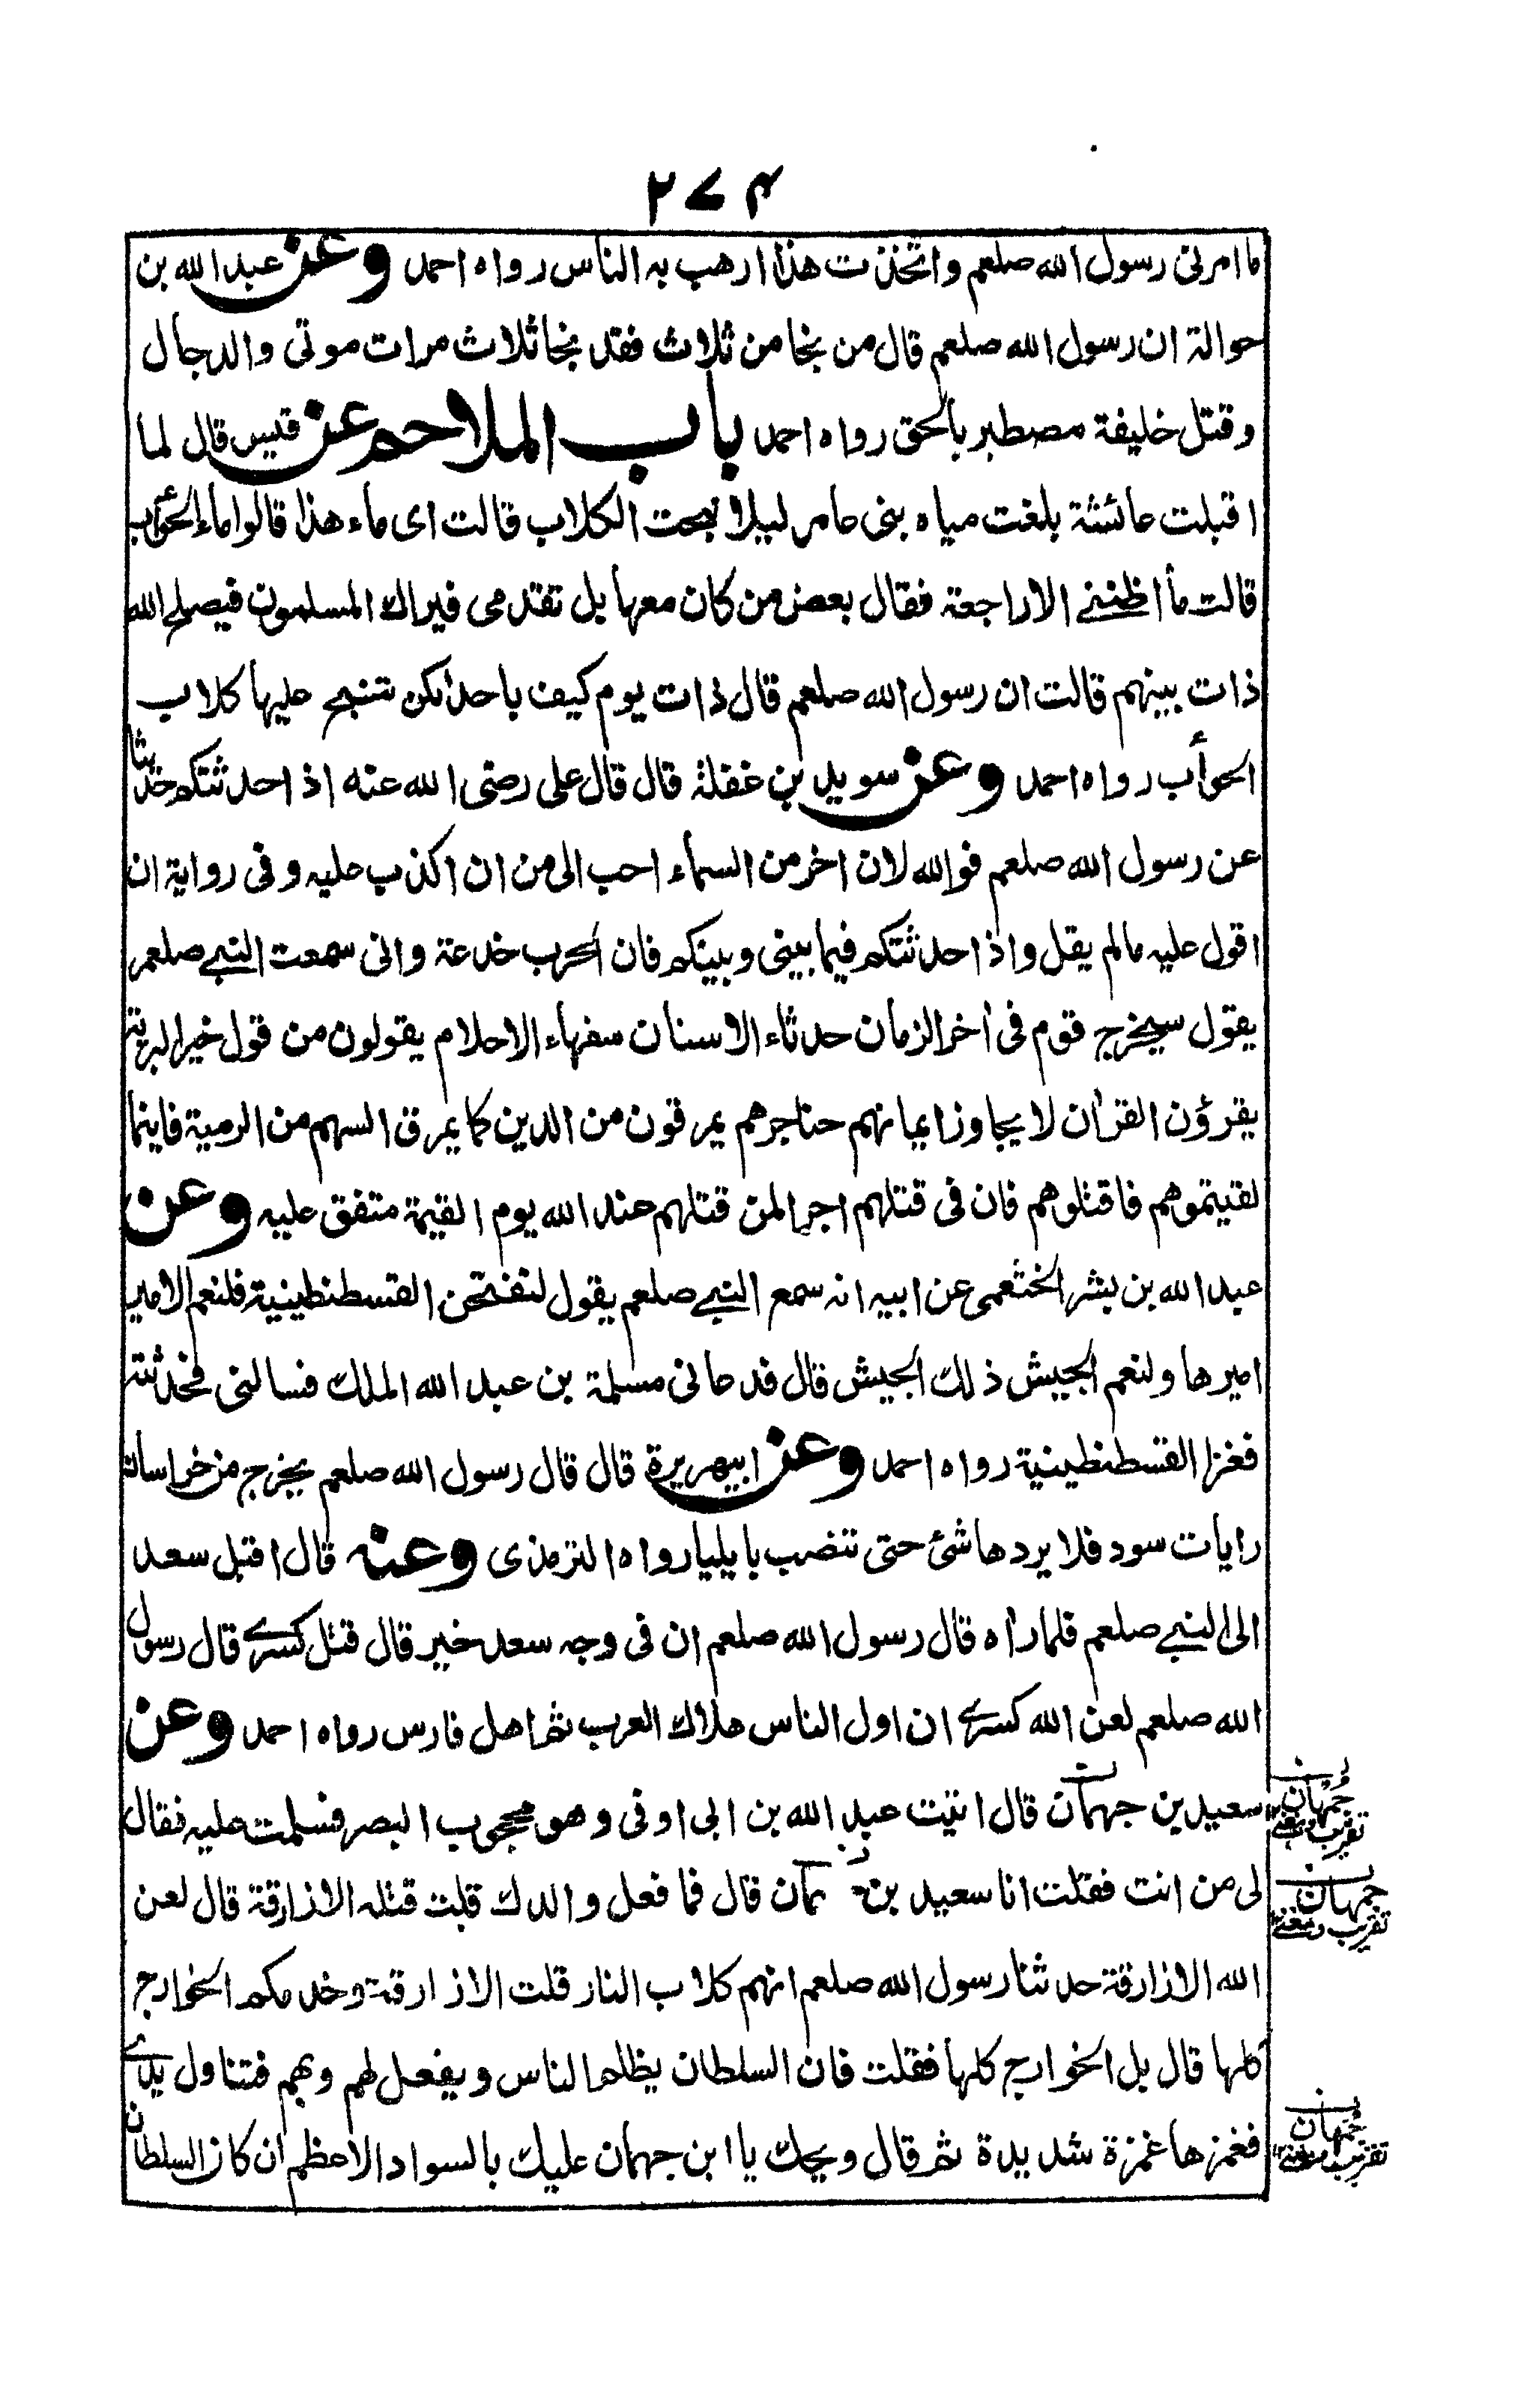 ٢٧٤
ما امرنی رسول الله صلعم واتخذت هذا ارهب به الناس رواه احمد وعن عبد الله بن
حوالة ان رسول الله صلعم قال من نجا من ثلاث فقد نجا ثلاث مرات موتی والدجال
وقتل خلیفة مصطبر بالحق رواه احمد باب الملاحم عن قیس قال لما
اقبلت عائشة بلغت میاه بنی عامر لیلا نبحت الکلاب قالت ای ماء هذا قالوا ماء الحوأب
قالت ما اظننے الا راجعة فقال بعض من کان معها بل تقدمی فیراك المسلمون فیصلح الله
ذات بینهم قالت ان رسول الله صلعم قال ذات یوم کیف باحدٰکن تنبح علیها کلاب
الحوأب رواه احمد وعن سوید بن غفلة قال قال علی رضی الله عنه اذا حدثتکم حدیثا
عن رسول الله صلعم فوالله لان اخر من السماء احب الی من ان اکذب علیه وفی روایة ان
اقول علیه مالم یقل واذا حدثتکم فیما بینی وبینکم فان الحرب خدعة وانی سمعت النبے صلعم
یقول سیخرج قوم فی اٰخر الزمان حدثاء الاسنان سفهاء الاحلام یقولون من قول خیر البریة
یقرؤن القراٰن لا یجاوز ایمانهم حناجرهم یمرقون من الدین کما یمرق السهم من الرمیة فاینما
لقیتموهم فاقتلوهم فان فی قتلهم اجرا لمن قتلهم عند الله یوم القیٰمة متفق علیه وعن
عبد الله بن بشر الخثعمی عن ابیه انه سمع النبے صلعم یقول لتفتحن القسطنطینیة فلنعم الامیر
امیرها ولنعم الجیش ذلك الجیش قال فدعانی مسلمة بن عبد الله الملك فسالنی فحدثته
فغزا القسطنطینیة رواه احمد وعن ابیهریرة قال قال رسول الله صلعم یخرج من خراسان
رایات سود فلا یردها شئ حتی تنصب بایلیا رواه الترمذی وعنه قال اقبل سعد
الی النبے صلعم فلما راٰه قال رسول الله صلعم ان فی وجه سعد خیر قال قتل کسرے قال رسول
الله صلعم لعن الله کسرے ان اول الناس هلاك العرب ثم اهل فارس رواه احمد وعن
سعید بن جهمان قال اتیت عبد الله بن ابی اوفی وهو محجوب البصر فسلمت علیه فقال
جُمْهان تقریب ومغنے
لی من انت فقلت انا سعید بن جمهان قال فما فعل والدك قلت قتله الازارقة قال لعن
جمهان تقریب ومغنے
الله الازارقة حدثنا رسول الله صلعم انهم کلاب النار قلت الازارقة وحدهم ام الخوارج
کلها قال بل الخوارج کلها فقلت فان السلطان یظلم الناس ویفعل لهم وبهم فتناول یدے
فغمزها غمزة شدیدة ثم قال ویحك یا ابن جهمان علیك بالسواد الاعظم ان کان السلطان
جُمْهان تقریب ومغنے